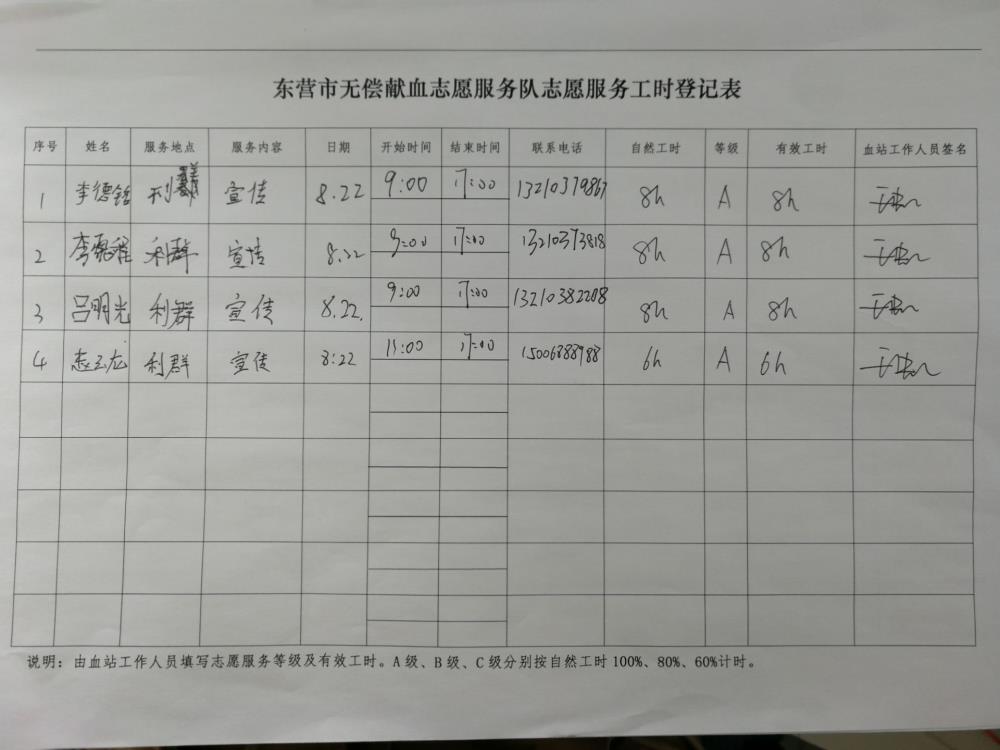 东营市无偿献血志愿服务队志愿服务工时登记表
序号 姓名 服务地点 服务内容 日期 开始时间 结束时间 联系电话 自然工时 等级 有效工时 血站工作人员签名
1 李德铭 利群 宣传 8.22 9:00 17:00 13210379867 8h A 8h
2 李 程 利群 宣传 8.22 9:00 17:00 13210373818 8h A 8h
3 吕明光 利群 宣传 8.22. 9:00 17:00 13210382208 8h A 8h
4 龙 利群 宣传 8:22 11:00 17:00 15006888988 6h A 6h
说明：由血站工作人员填写志愿服务等级及有效工时。A级、B级、C级分别按自然工时100%、80%、60%计时。